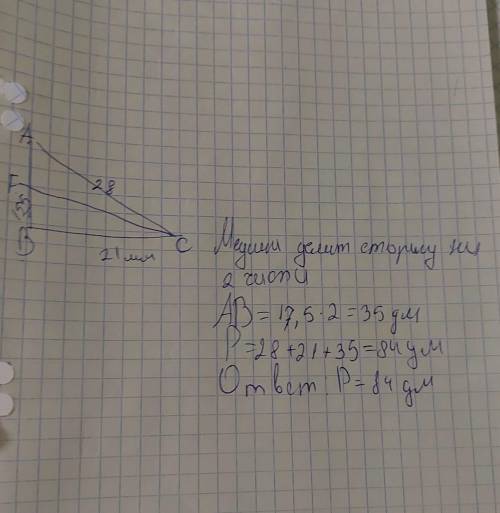 A
28
F
35
B
21 мм
C
Медиан делит сторону на
2 части
AB = 17,5 · 2 = 35 дм
P = 28 + 21 + 35 = 84 дм
Ответ P = 84 дм